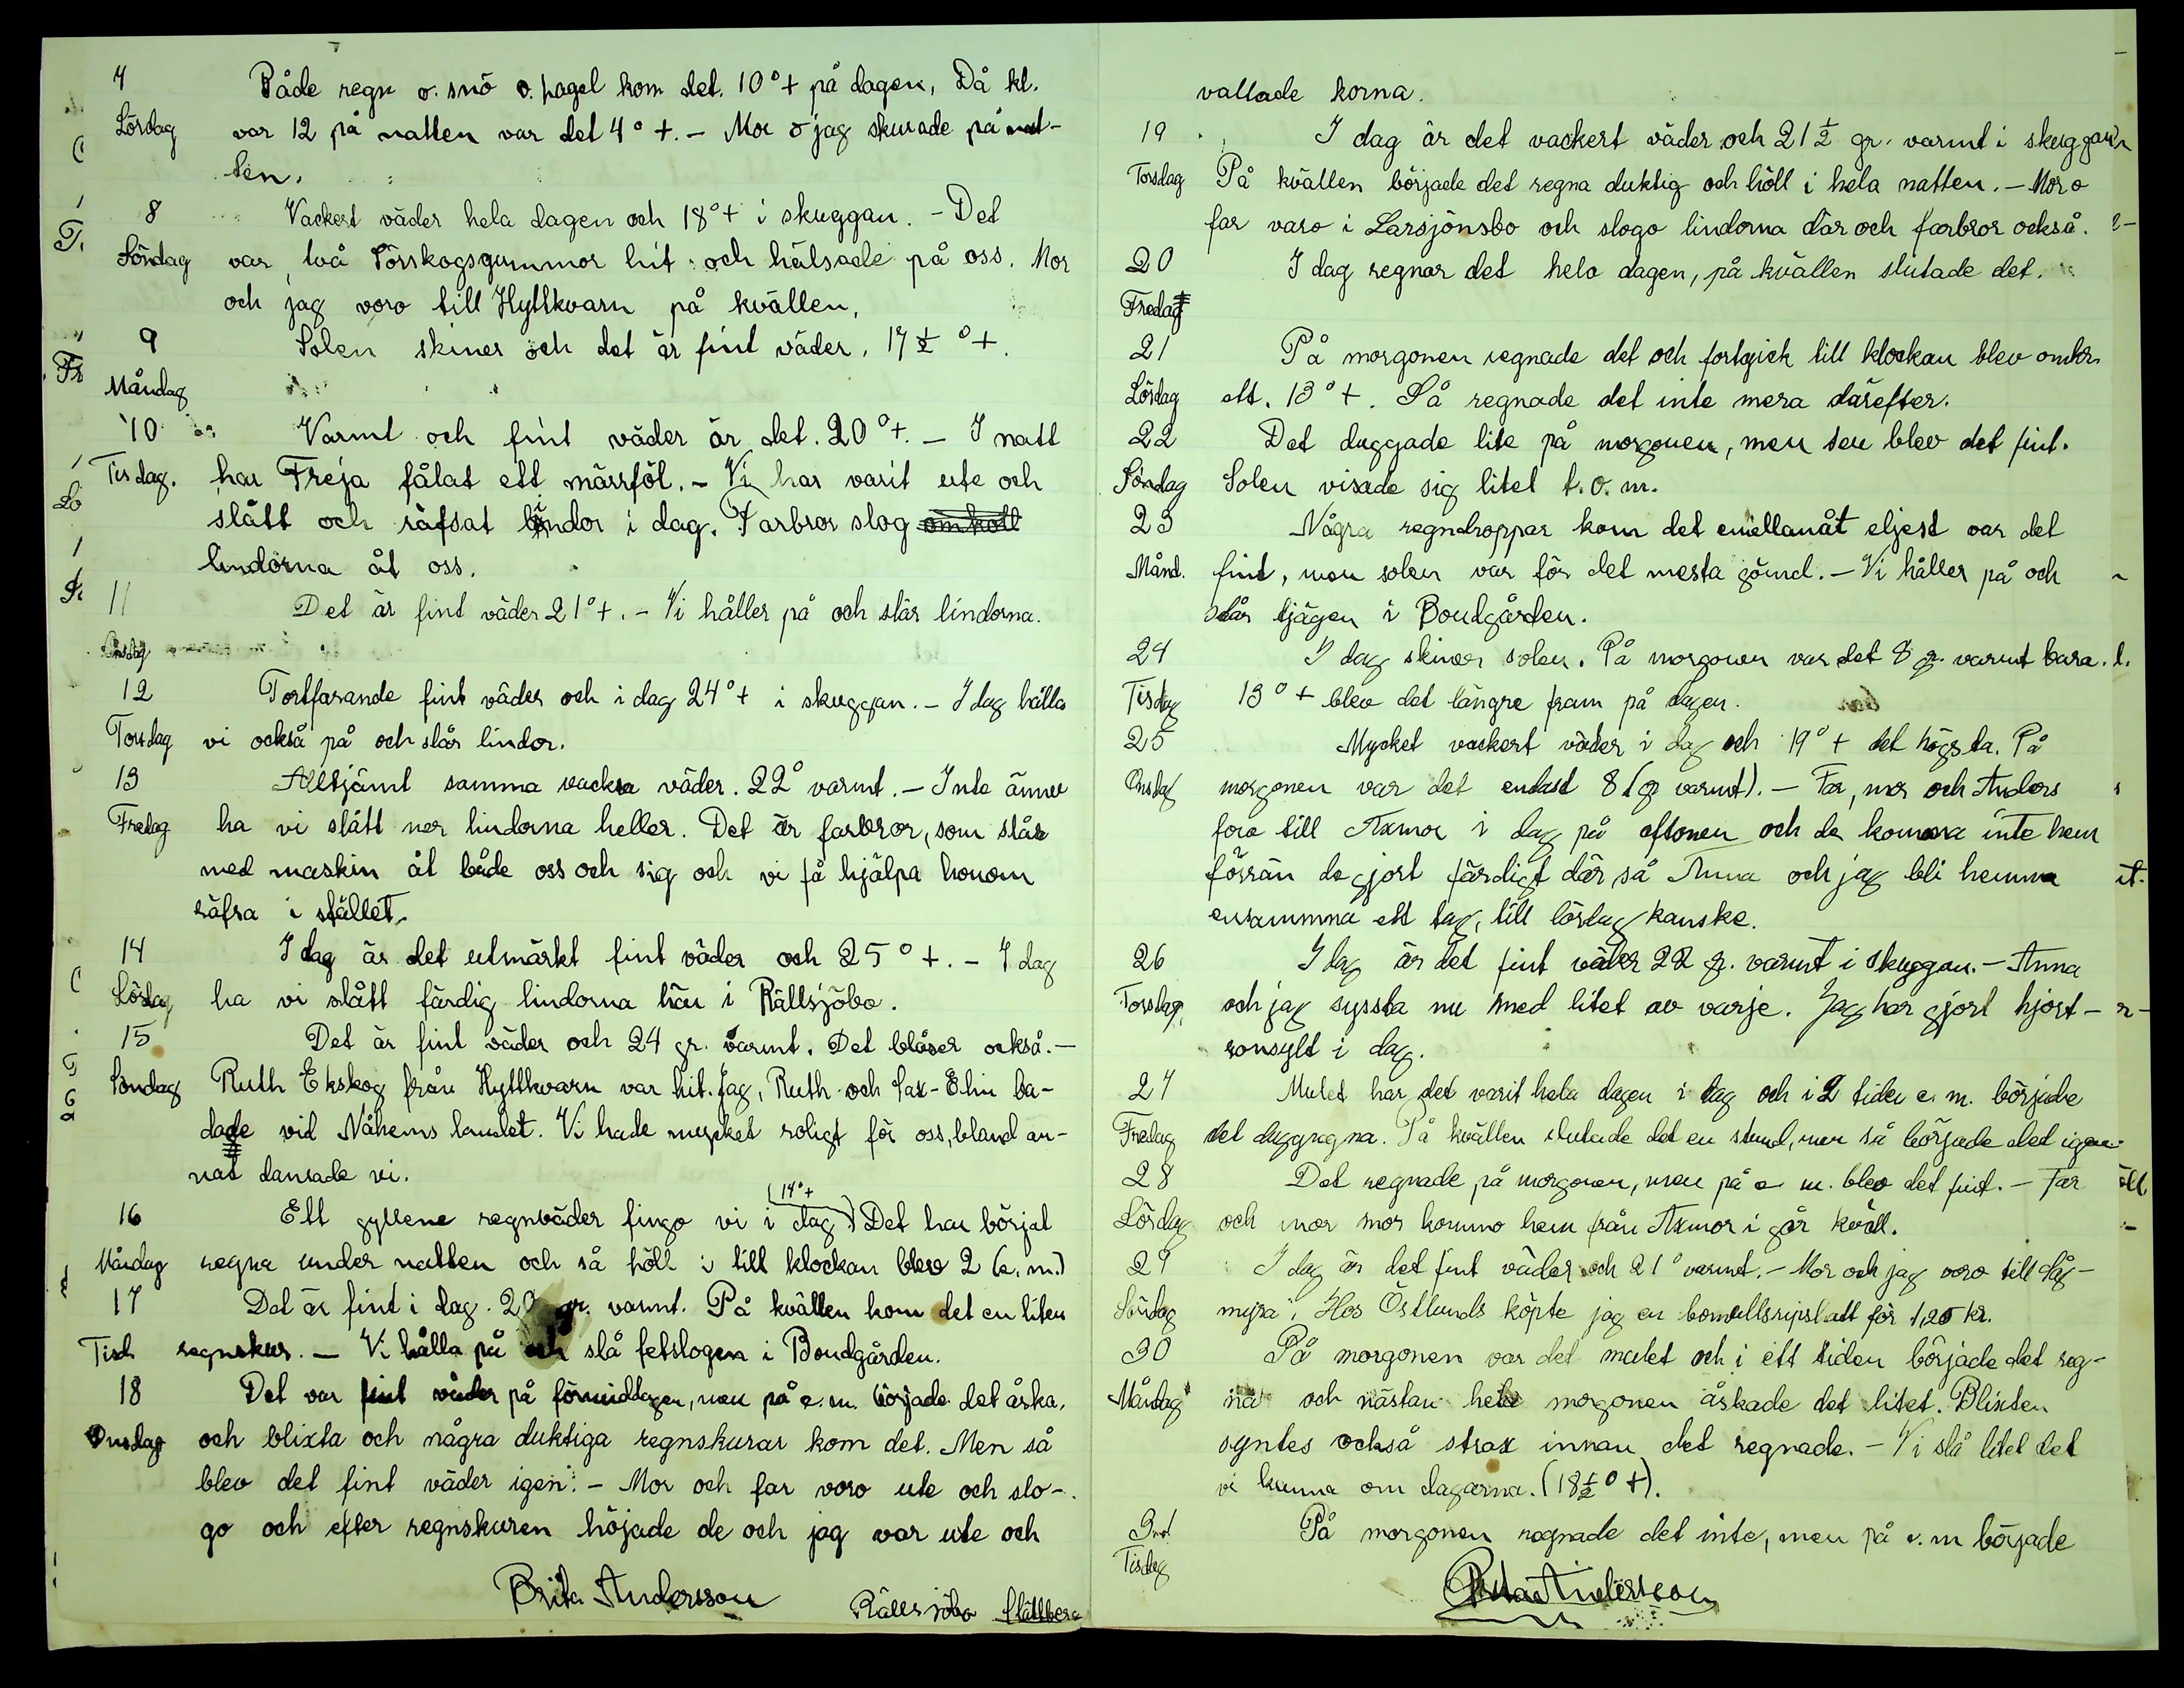 7 Både regn o. snö o. hagel kom det. 10°+ på dagen, Då kl.
Lördag var 12 på natten var det 4°+. - Mor o jag skurade på nat-
ten.
8 Vackert väder hela dagen och 18°+ i skuggan. - Det
Söndag var två Törskogsgummor hit och hälsade på oss. Mor
och jag voro till Hyttkvarn på kvällen,
9 Solen skiner och det är fint väder. 17 1/2 °+.
Måndag
10 Varmt och fint väder är det. 20°+. - I natt
Tisdag. har Freja fålat ett märrföl. - Vi har varit ute och
slått och räfsat lindor i dag. Farbror slog omkoll
lindorna åt oss.
11 Det är fint väder 21°+. - Vi håller på och slår lindorna.
Onsdag
12 Fortfarande fint väder och i dag 24°+ i skuggan. - I dag hålla
Torsdag vi också på och slår lindor.
13 Alltjämt samma vackra väder. 22° varmt. - Inte ännu
Fredag ha vi slått ner lindorna heller. Det är farbror, som slår
med maskin åt både oss och sig och vi få hjälpa honom
räfsa i stället.
14 I dag är det utmärkt fint väder och 25°+. - I dag
Lördag ha vi slått färdig lindorna här i Rällsjöbo.
15 Det är fint väder och 24 gr. varmt. Det blåser också. -
Söndag Ruth Ekskog från Hyttkvarn var hit. Jag, Ruth och Sax-Elin ba-
dade vid Nåhems landet. Vi hade mycket roligt för oss, bland an-
nat dansade vi.
(14°+
16 Ett gyllene regnväder fingo vi i dag) Det har börjat
Måndag regna under natten och så höll i till klockan blev 2 (e. m.)
17 Det är fint i dag. 20 gr. varmt. På kvällen kom det en liten
Tisd. regnskur. - Vi hålla på och slå fetslogen i Bondgården.
18 Det var fint väder på förmiddagen, men på e. m. började det åska,
Onsdag och blixta och några duktiga regnskurar kom det. Men så
blev det fint väder igen. - Mor och far voro ute och slo-
go och efter regnskuren höjade de och jag var ute och
Brita Andersson Rällsjöbo Slättberg
vallade korna.
19 I dag är det vackert väder och 21 1/2 gr. varmt i skuggan
Torsdag På kvällen började det regna duktig och höll i hela natten. - Mor o
far varo i Larsjönsbo och slogo lindorna där och farbror också.
20 I dag regnar det hela dagen, på kvällen slutade det.
Fredag
21 På morgonen regnade det och fortgick till klockan blev omkr.
Lördag ett. 13°+. Så regnade det inte mera därefter.
22 Det duggade lite på morgonen, men sen blev det fint.
Söndag Solen visade sig litet t. o. m.
23 Några regndroppar kom det emellanåt eljest var det
Månd. fint, men solen var för det mesta gömd. - Vi håller på och
slår tjägen i Bondgården.
24 I dag skiner solen. På morgonen var det 8 gr. varmt bara.
Tisdag 13°+ blev det längre fram på dagen.
25 Mycket vackert väder i dag och 19°+ det högsta. På
Onsdag morgonen var det endast 8 (gr varmt). - Far, mor och Anders
foro till Axmor i dag på eftonen och de komma inte hem
förrän de gjort färdigt där, så Anna och jag bli hemma
ensamma ett tag, till lördag kanske.
26 I dag är det fint väder 22 gr. varmt i skuggan. - Anna
Torsdag, och jag syssla nu med litet av varje. Jag har gjort hjort-
ronsylt i dag.
27 Mulet har det varit hela dagen i dag och i 2 tiden e. m. började
Fredag det duggregna. På kvällen slutade det en stund, men så började det igen.
28 Det regnade på morgonen, men på e m. blev det fint. - Far
Lördag och mor mor kommo hem från Axmor i går kväll.
29 I dag är det fint väder och 21° varmt. - Mor och jag voro till Låg-
Söndag myra. Hos Östlunds köpte jag en bomullsripshatt för 1,25 kr.
30 På morgonen var det mulet och i ett tiden började det reg-
Måndag na och nästan hela morgonen åskade det litet. Blixten
syntes också strax innan det regnade. - Vi slå litet det
vi kunna om dagarna. (18 1/2 ° +).
31 På morgonen regnade det inte, men på e. m började
Tisdag
Brita Andersson